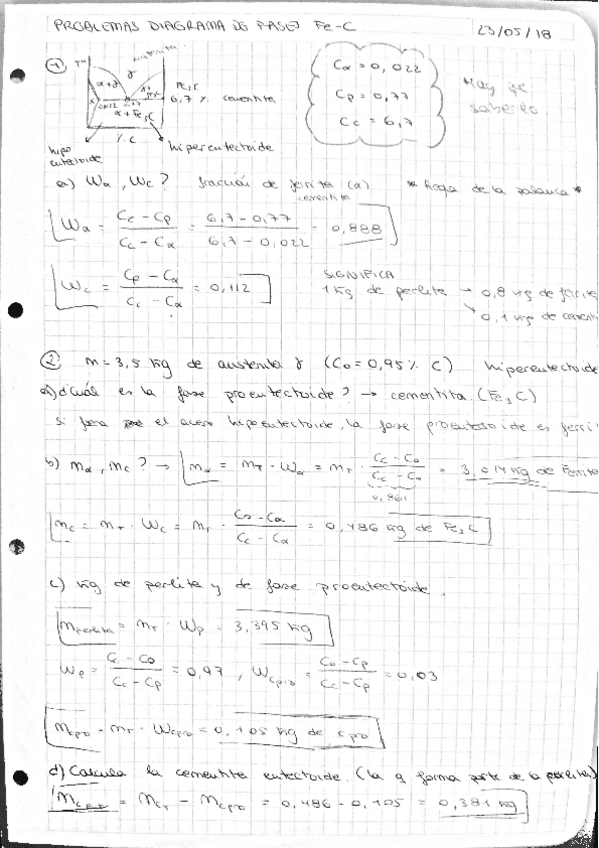 PROBLEMAS DIAGRAMA DE FASES Fe-C
23/05/18
1
Tª
austenita
γ
α+γ
Fe3C
6,7 % cementita
α
0,022 0,77
α + Fe3C
% C
hipo eutectoide
hipereutectoide
Cα = 0,022
Cp = 0,77
Cc = 6,7
Hay que saberlo.
a) Wα, Wc? fracción de ferrita (α) * Regla de la palanca *
cementita
Wα = Cc - Cp / Cc - Cα = 6,7 - 0,77 / 6,7 - 0,022 = 0,888
Wc = Cp - Cα / Cc - Cα = 0,112
SIGNIFICA
1 kg de perlita → 0,8 kg de ferrita
↘ 0,1 kg de cement
2 m = 3,5 kg de austenita γ (Co = 0,95 % C) hipereutectoide
a) ¿Cuál es la fase proeutectoide? → cementita (Fe3C)
si fera el acero hipoeutectoide, la fase proeutectoide es ferri
b) mα, mc? → mα = mT · Wα = mT · Cc - Co / Cc - Cα = 3,014 kg de Ferrita
0,861
mc = mT · Wc = mT · Co - Cα / Cc - Cα = 0,486 kg de Fe3C
c) kg de perlita y de fase proeutectoide.
mperlita = mT · Wp = 3,395 kg
Wp = Cc - Co / Cc - Cp = 0,97 , Wcpro = Co - Cp / Cc - Cp = 0,03
mcpro = mT · Wcpro = 0,105 kg de cpro
d) Calcula la cementita eutectoide. (la q forma parte de la perlita)
mceut = mcT - mcpro = 0,486 - 0,105 = 0,381 kg